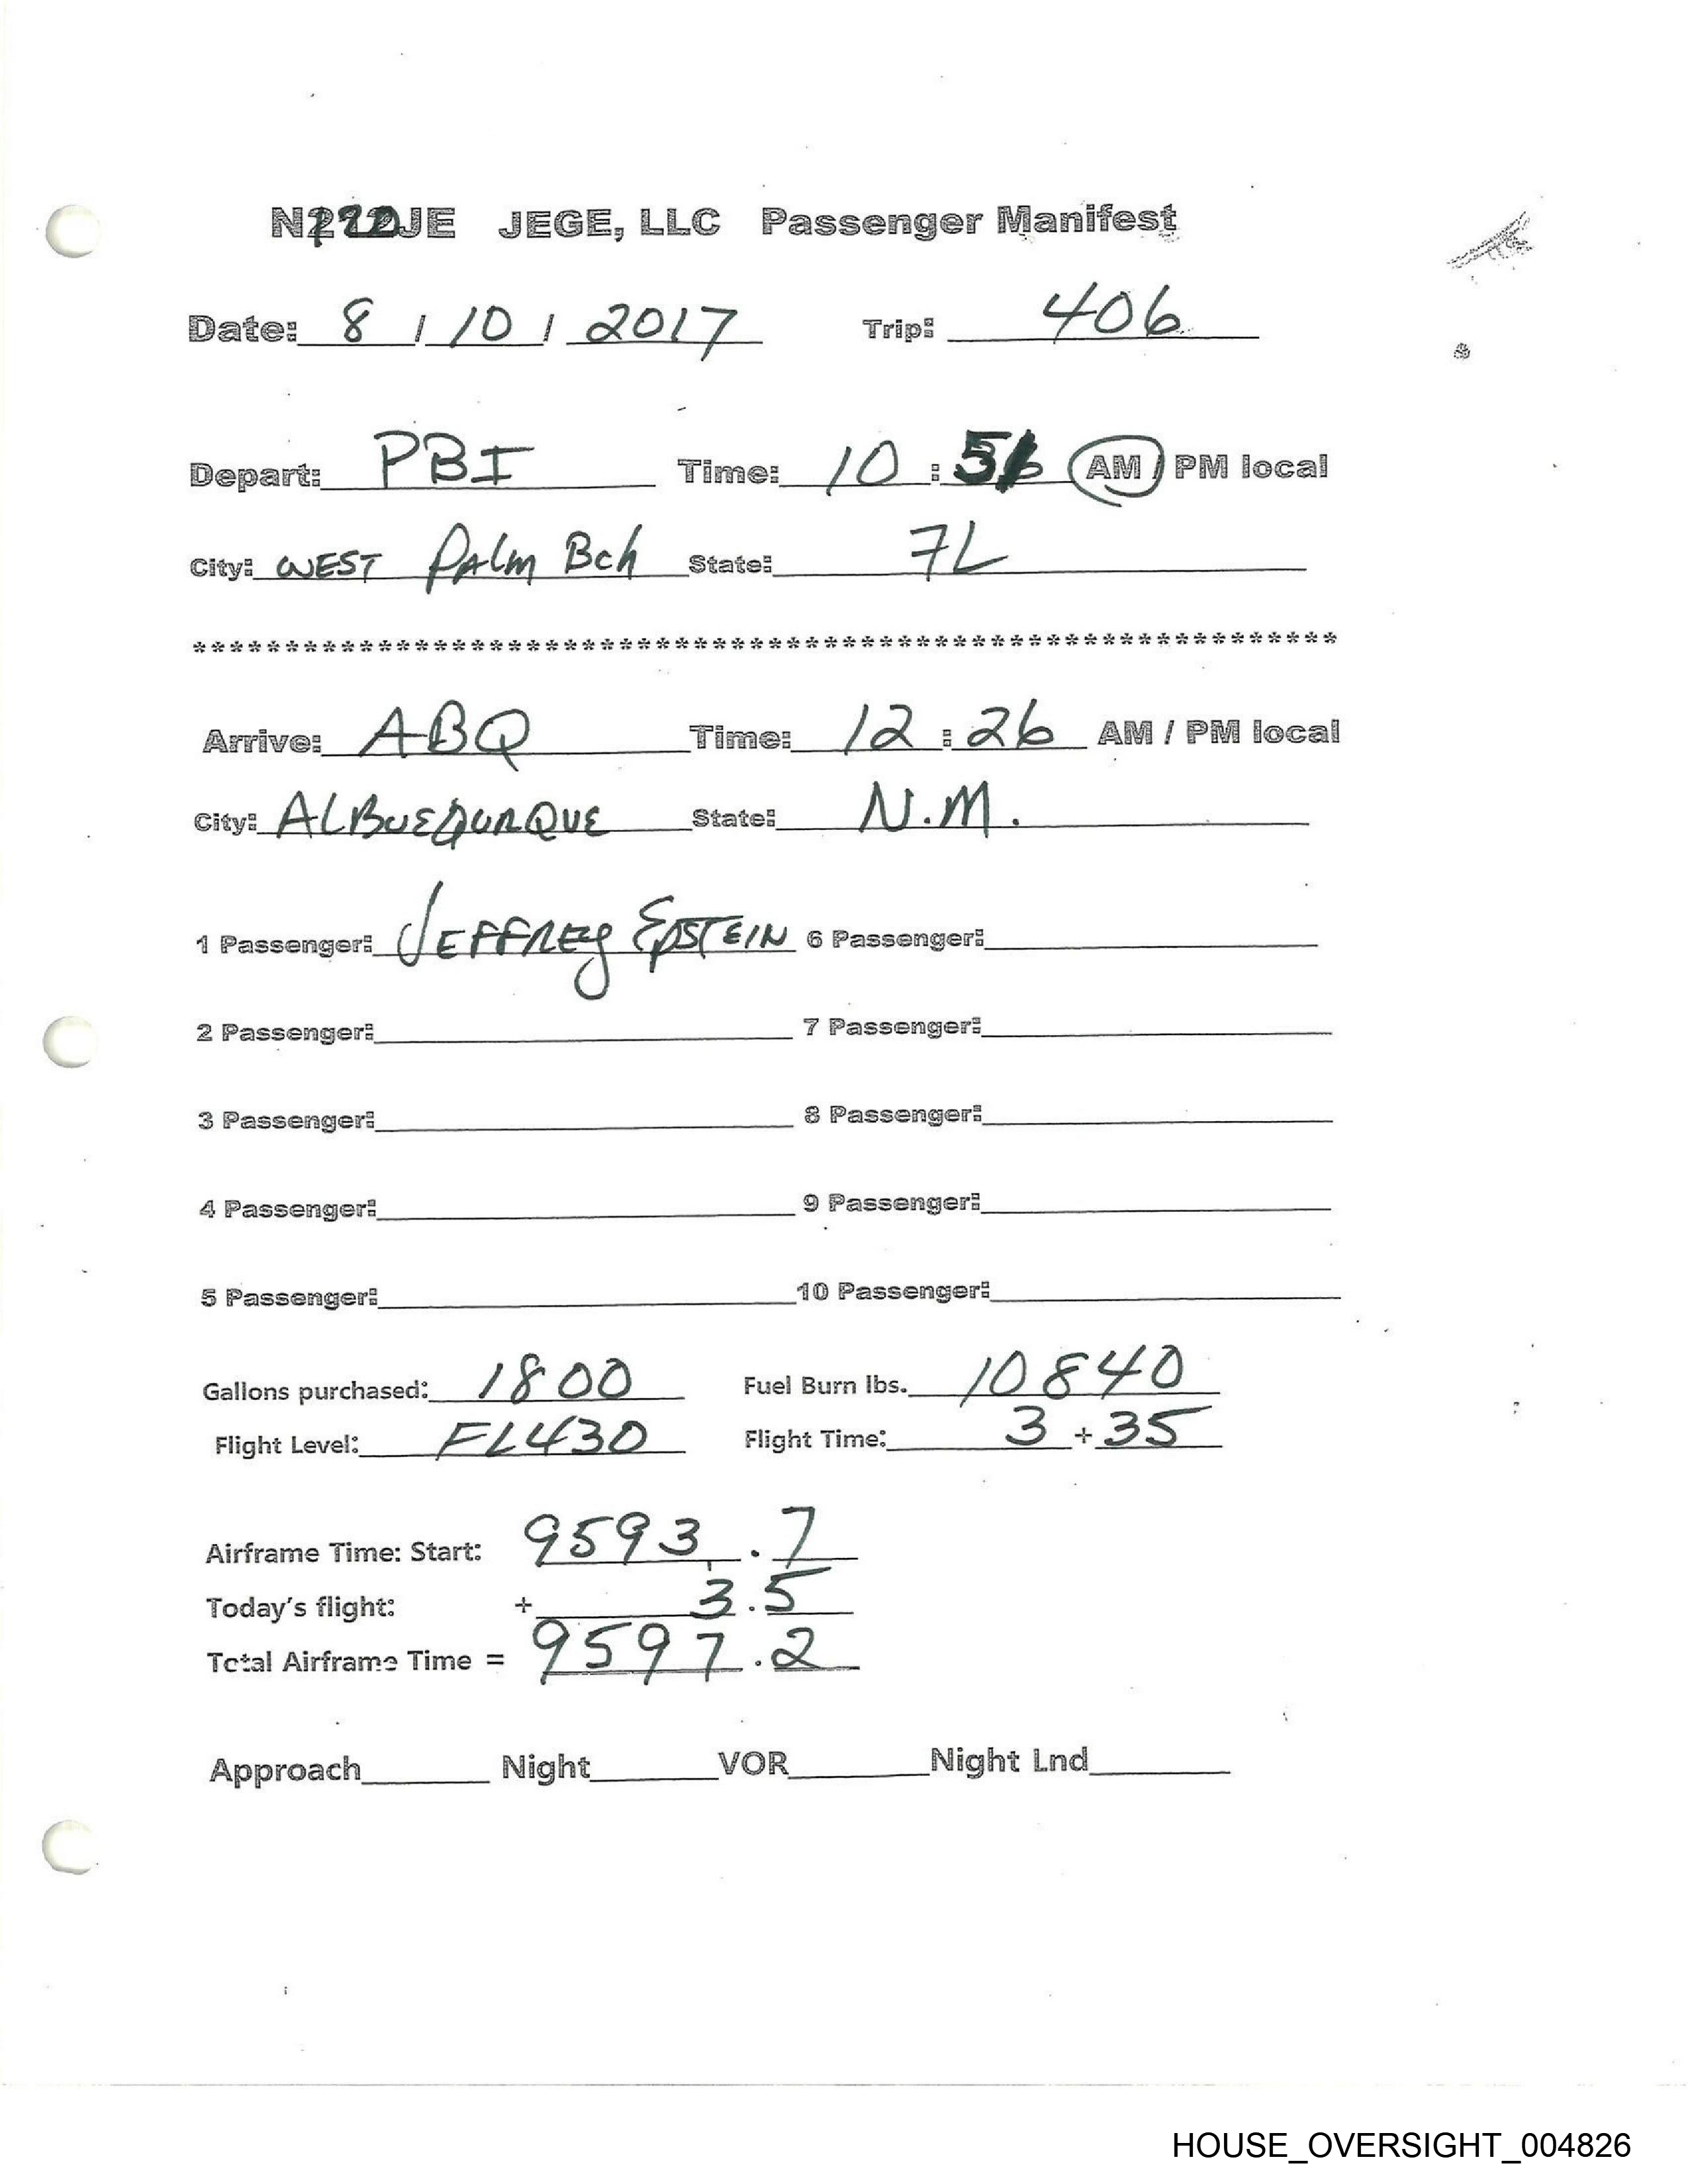 JEGE, LLC Passenger Manifest
Date: 8 / 10 / 2017 Trip: 406
Depart: PBI Time: 10 : AM / PM local
City: WEST PAlm Bch State: FL
************************************************************
Arrive: ABQ Time: 12 : 26 AM / PM local
City: ALBUEQURQUE State: N.M.
1 Passenger: JEFFREy EPSTEIN 6 Passenger:
2 Passenger: 7 Passenger:
3 Passenger: 8 Passenger:
4 Passenger: 9 Passenger:
5 Passenger: 10 Passenger:
Gallons purchased: 1800 Fuel Burn lbs. 10840
Flight Level: FL430 Flight Time: 3 + 35
Airframe Time: Start: 9593 . 7
Today's flight: + 3 . 5
Total Airframe Time = 9597 . 2
Approach Night VOR Night Lnd
HOUSE_OVERSIGHT_004826